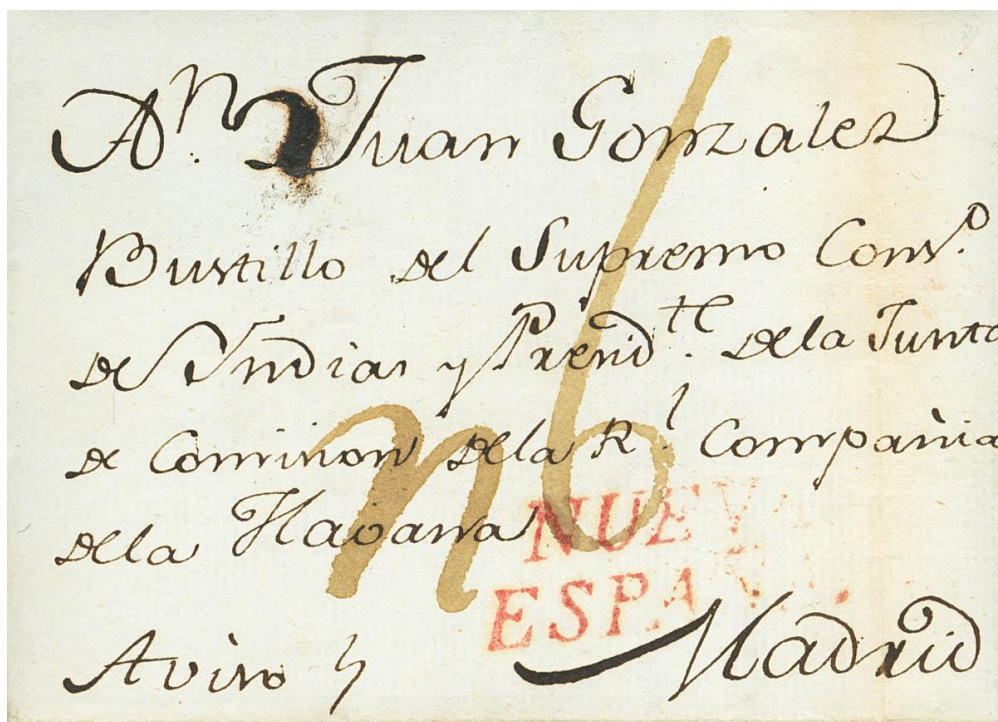 A Dn. Juan Gonzalez
Bustillo del Supremo Cons.o
de Yndias y Presid.te de la Junta
de Comision de la R.l Compañia
de la Havana
n6
NUEVA
ESPAÑA.
Aviso Madrid